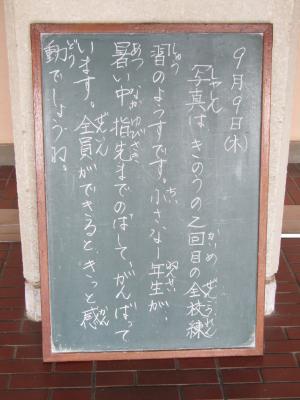 9月9日(水)
写真は きのうの2回目の全校練
習のようすです。小さな1年生が、
暑い中 指先までのばして、がんばって
います。全員ができると きっと感
動でしょうね。